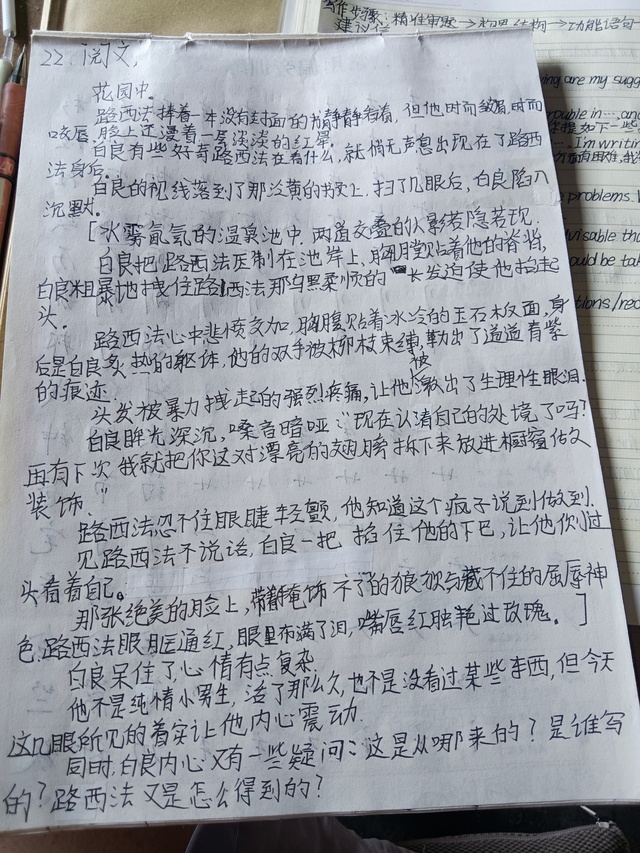 写作步骤：精准审题→构思结构→功能语句
建议信
22. 同文，
花园中.
路西法捧着一本没有封面的书静静看着，但他时而皱眉，时而
咬唇，脸上还漫着一层淡淡的红晕.
白良有些好奇路西法在看什么，就悄无声息出现在了路西
法身后.
白良的视线落到了那泛黄的书页上，扫了几眼后，白良陷入
沉默.
[水雾氤氲的温泉池中，两道交叠的人影若隐若现.
白良把路西法压制在池岸上，胸膛贴着他的脊背，
白良粗暴地拽住路西法那乌黑柔顺的长发迫使他抬起
头.
路西法心中悲愤交加，胸腹贴着冰冷的玉石板面，身
后是白良炙热的躯体，他的双手被柳枝束缚，勒出了道道青紫
的痕迹.
头发被暴力拽起的强烈疼痛，让他被激出了生理性眼泪.
白良眸光深沉，嗓音喑哑："现在认清自己的处境了吗？
再有下次我就把你这对漂亮的翅膀拆下来放进橱窗做
装饰."
路西法忍不住眼睫轻颤，他知道这个疯子说到做到.
见路西法不说话，白良一把掐住他的下巴，让他侧过
头看着自己。
那张绝美的脸上，带着掩饰不了的狼狈与藏不住的屈辱神
色，路西法眼眶通红，眼里布满了泪，嘴唇红艳过玫瑰。]
白良呆住了心情有点复杂.
他不是纯情小男生，活了那么久，也不是没看过某些东西，但今天
这几眼所见的着实让他内心震动.
同时，白良内心又有一些疑问：这是从哪来的？是谁写
的？路西法又是怎么得到的？